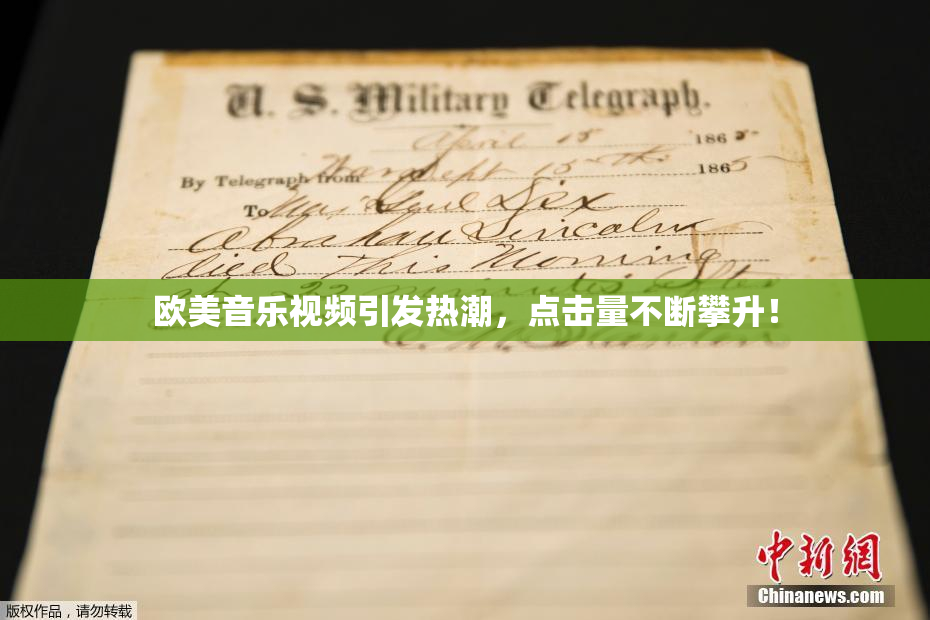 U. S. Military Telegraph.
April 15 1865
By Telegraph from Wash Dept 15th 1865
To Maj Genl Dix
Abraham Lincoln
died This Morning
at 22 minutes after
欧美音乐视频引发热潮，点击量不断攀升！
中新网
Chinanews.com
版权作品，请勿转载